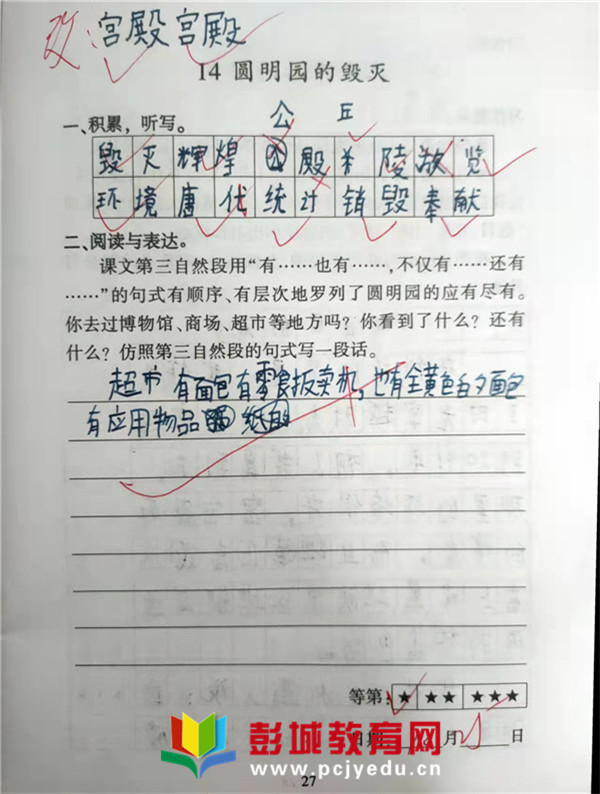 改：宫殿 宫殿
14 圆明园的毁灭
一、积累，听写。
公 丘
毁灭辉煌 殿 陵 览
环境唐代统计销毁奉献
二、阅读与表达。
课文第三自然段用“有……也有……，不仅有……还有
……”的句式有顺序、有层次地罗列了圆明园的应有尽有。
你去过博物馆、商场、超市等地方吗？你看到了什么？还有
什么？仿照第三自然段的句式写一段话。
超市 有面包有零食扳卖机，也有全黄色白夕面包
有应用物品 纸
等第：★ ★★ ★★★
日期： 月 日
彭城教育网
www.pcjyedu.cn
27